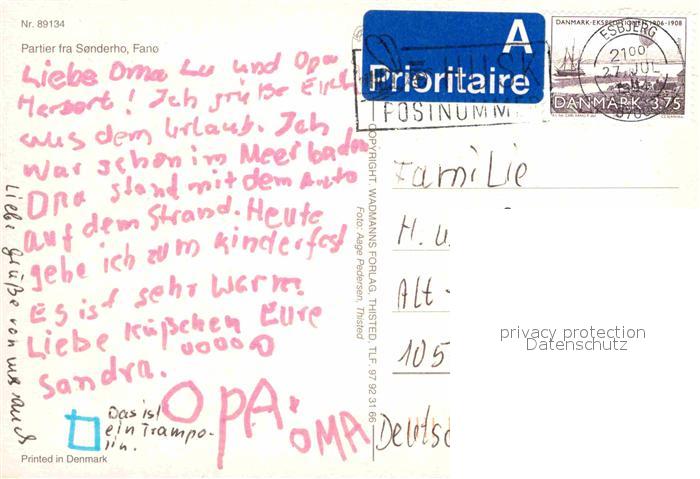 Nr. 89134
Partier fra Sønderho, Fanø
Liebe Oma Lu und Opa
Herbert! Ich grüße Euch
aus dem Urlaub. Ich
war schon im Meer baden
Opa stand mit dem Auto
auf dem Strand. Heute
gehe ich zum Kinderfest
Es ist sehr warm
Liebe Küßchen Eure
ooooo
Sandra.
OPA
OMA
Das ist
ein Trampo-
lin.
Liebe Grüße von uns auch
Printed in Denmark
COPYRIGHT: WADMANNS FORLAG, THISTED, TLF. 97 92 31 66
Foto: Aage Pedersen, Thisted
A
Prioritaire
HUSK
POSTNUMM
DANMARK-EKSPEDITIONEN 1906-1908
DANMARK 3.75
ESBJERG
2100
27. JUL
Familie
H. u
Alt-
105
Deutsc
privacy protection
Datenschutz